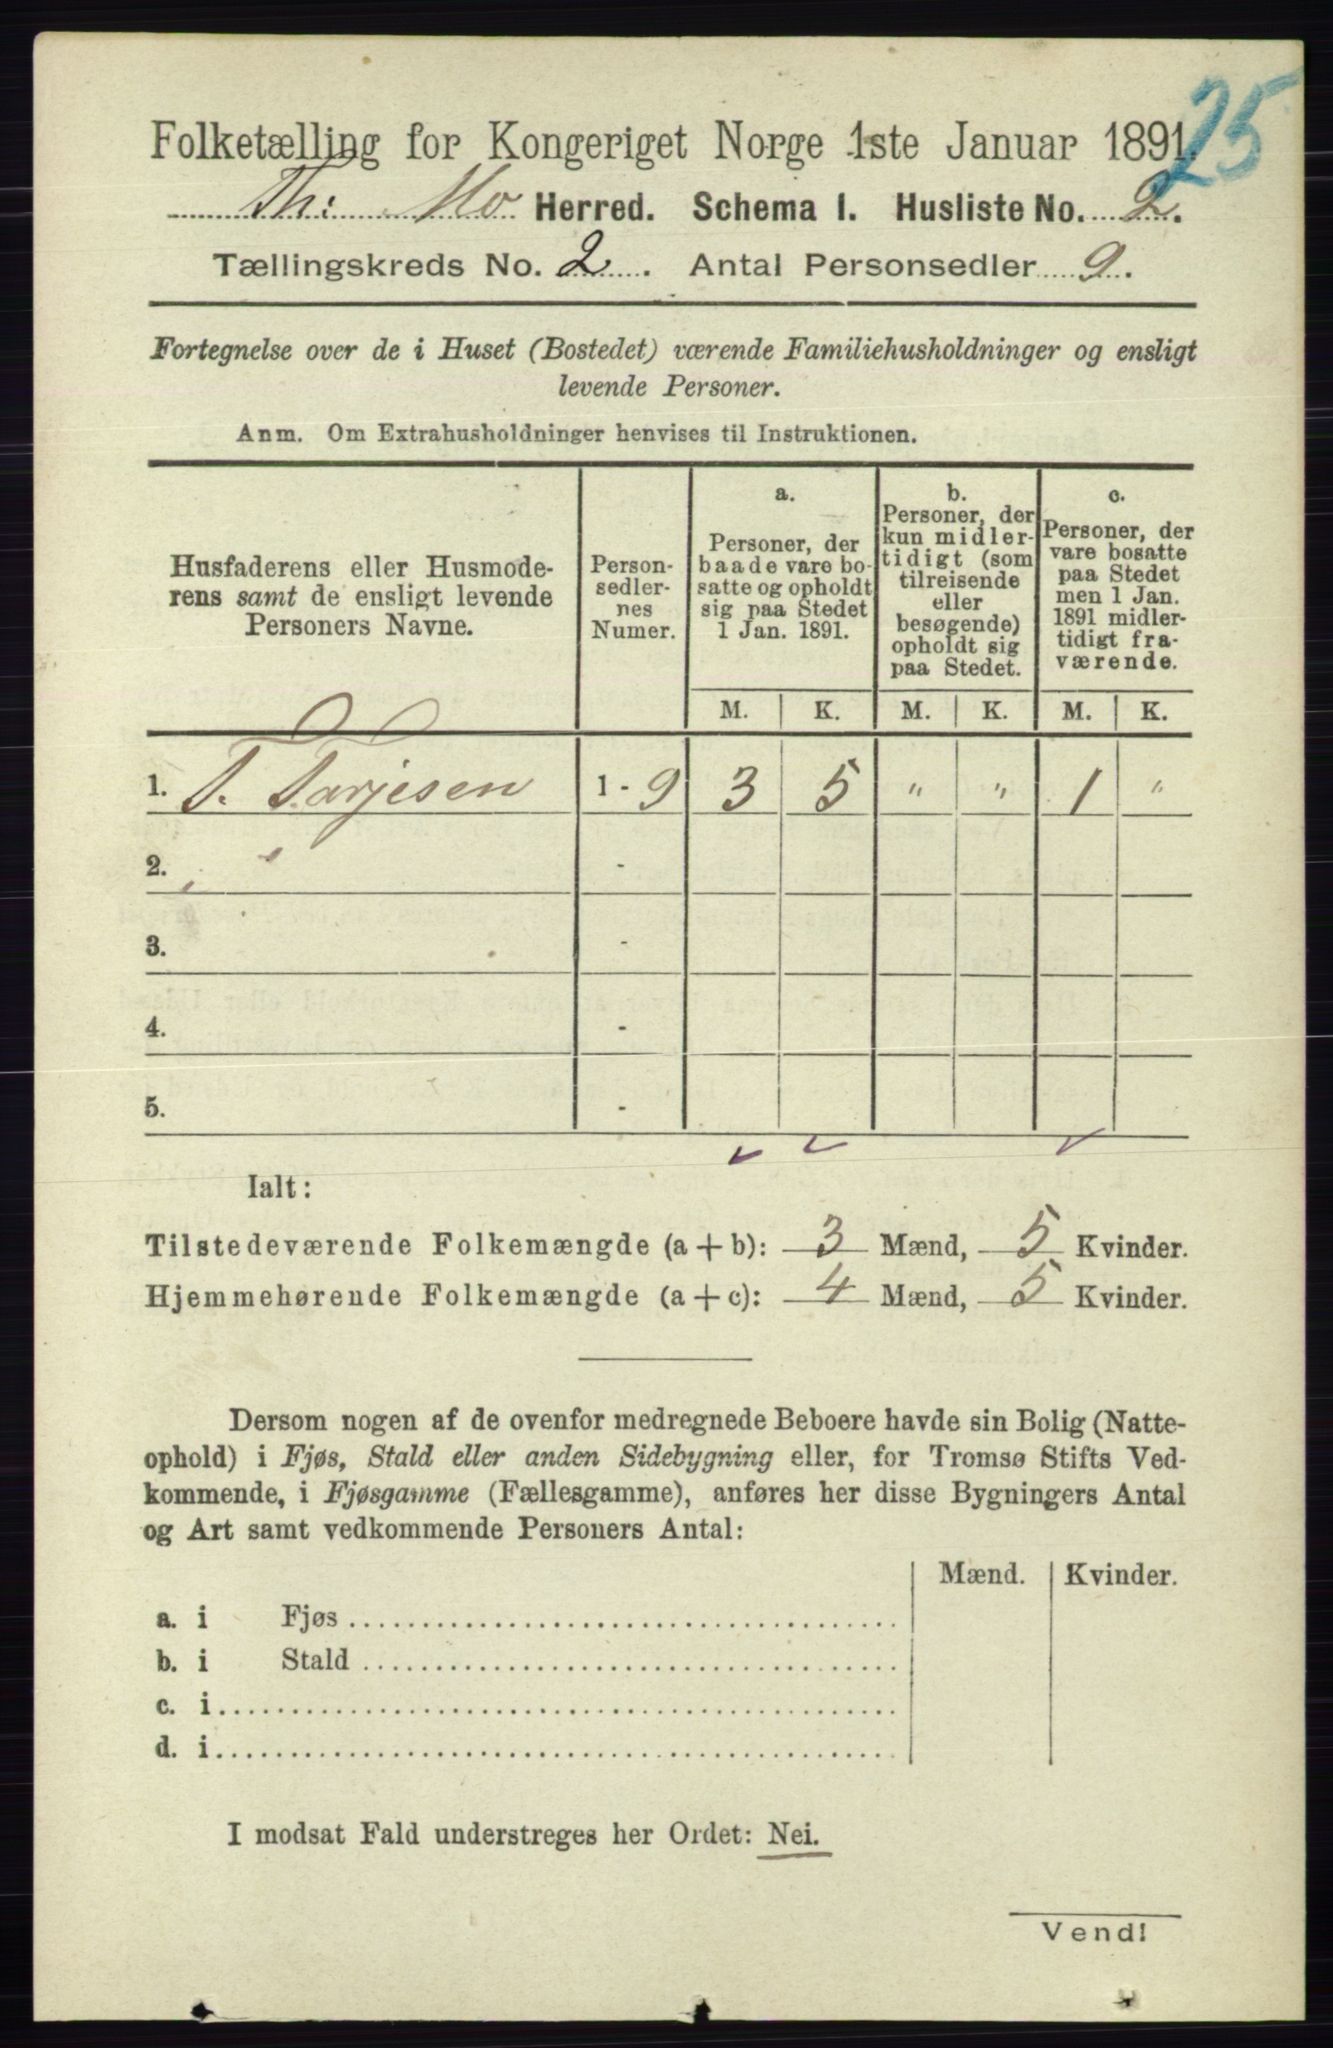 25
Folketælling for Kongeriget Norge 1ste Januar 1891.
Th: Mo Herred. Schema I. Husliste No. 2.
Tællingskreds No. 2. Antal Personsedler 9.
Fortegnelse over de i Huset (Bostedet) værende Familiehusholdninger og ensligt
levende Personer.
Anm. Om Extrahusholdninger henvises til Instruktionen.
Husfaderens eller Husmode-
rens samt de ensligt levende
Personers Navne.
Person-
sedler-
nes
Numer.
a.
Personer, der
baade vare bo-
satte og opholdt
sig paa Stedet
1 Jan. 1891.
b.
Personer, der
kun midler-
tidigt (som
tilreisende
eller
besøgende)
opholdt sig
paa Stedet.
c.
Personer, der
vare bosatte
paa Stedet
men 1 Jan.
1891 midler-
tidigt fra-
værende.
M. K. M. K. M. K.
1. T. Tarjesen 1 - 9 3 5 " " 1 "
2. -
3. -
4. -
5. -
Ialt:
Tilstedeværende Folkemængde (a + b): 3 Mænd, 5 Kvinder.
Hjemmehørende Folkemængde (a + c): 4 Mænd, 5 Kvinder.
Dersom nogen af de ovenfor medregnede Beboere havde sin Bolig (Natte-
ophold) i Fjøs, Stald eller anden Sidebygning eller, for Tromsø Stifts Ved-
kommende, i Fjøsgamme (Fællesgamme), anføres her disse Bygningers Antal
og Art samt vedkommende Personers Antal:
Mænd. Kvinder.
a. i Fjøs
b. i Stald
c. i
d. i
I modsat Fald understreges her Ordet: Nei.
Vend!